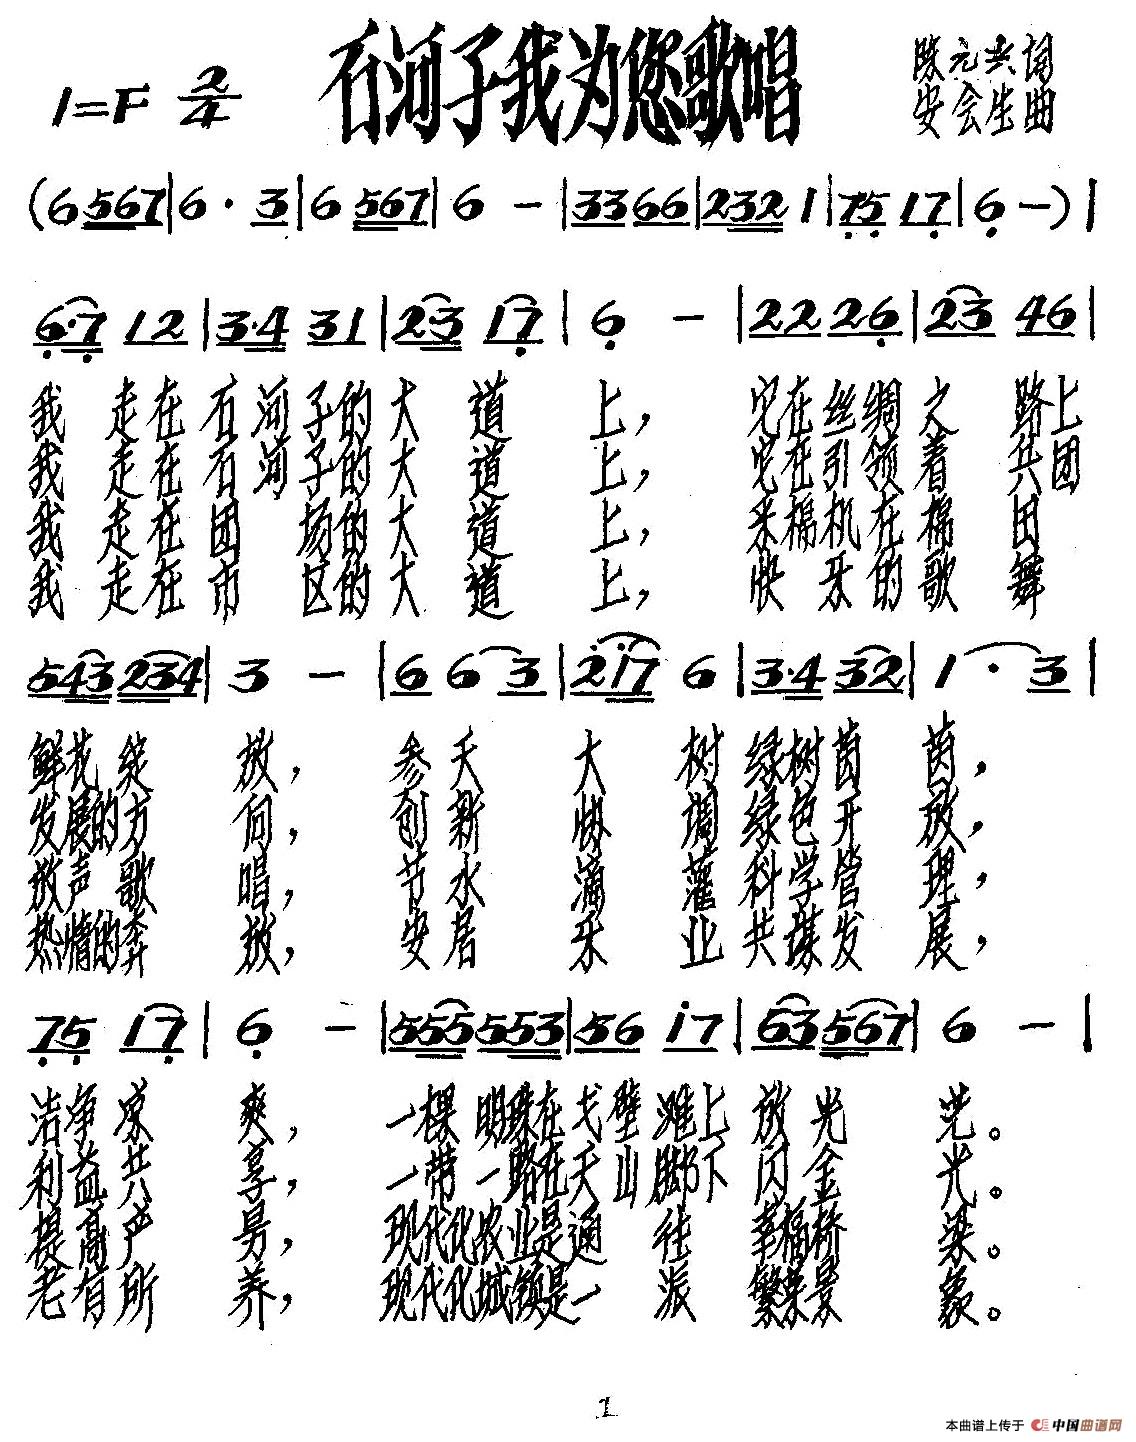 石河子我为您歌唱
1=F 2/4
陈元兴词
安会生曲
(6 567|6· 3|6 567|6 -|33 66|2 32 1|75 17|6 -)|
6·7 12|3·4 31|2·3 17|6 -|22 26|23 46|
我走在石河子的大道上，它在丝绸之路上
我走在石河子的大道上，它在引领着兵团
我走在团场的大道上，采棉机在棉田
我走在市区的大道上，快乐的歌舞
543 234|3 -|6 6 3|2i7 6|3·4 32|1· 3|
鲜花绽放，参天大树绿树茵茵，
发展的方向，创新协调绿色开放，
放声歌唱，节水滴灌科学管理，
热情的奔放，安居乐业共谋发展，
75 17|6 -|555 553|56 i7|63 567|6 -|
洁净凉爽，一棵明珠在戈壁滩上放光芒。
利益共享，一带一路在天山脚下闪金光。
提高产量，现代化农业是通往幸福桥梁。
老有所养，现代化城镇是一派繁荣景象。
1
本曲谱上传于 中国曲谱网